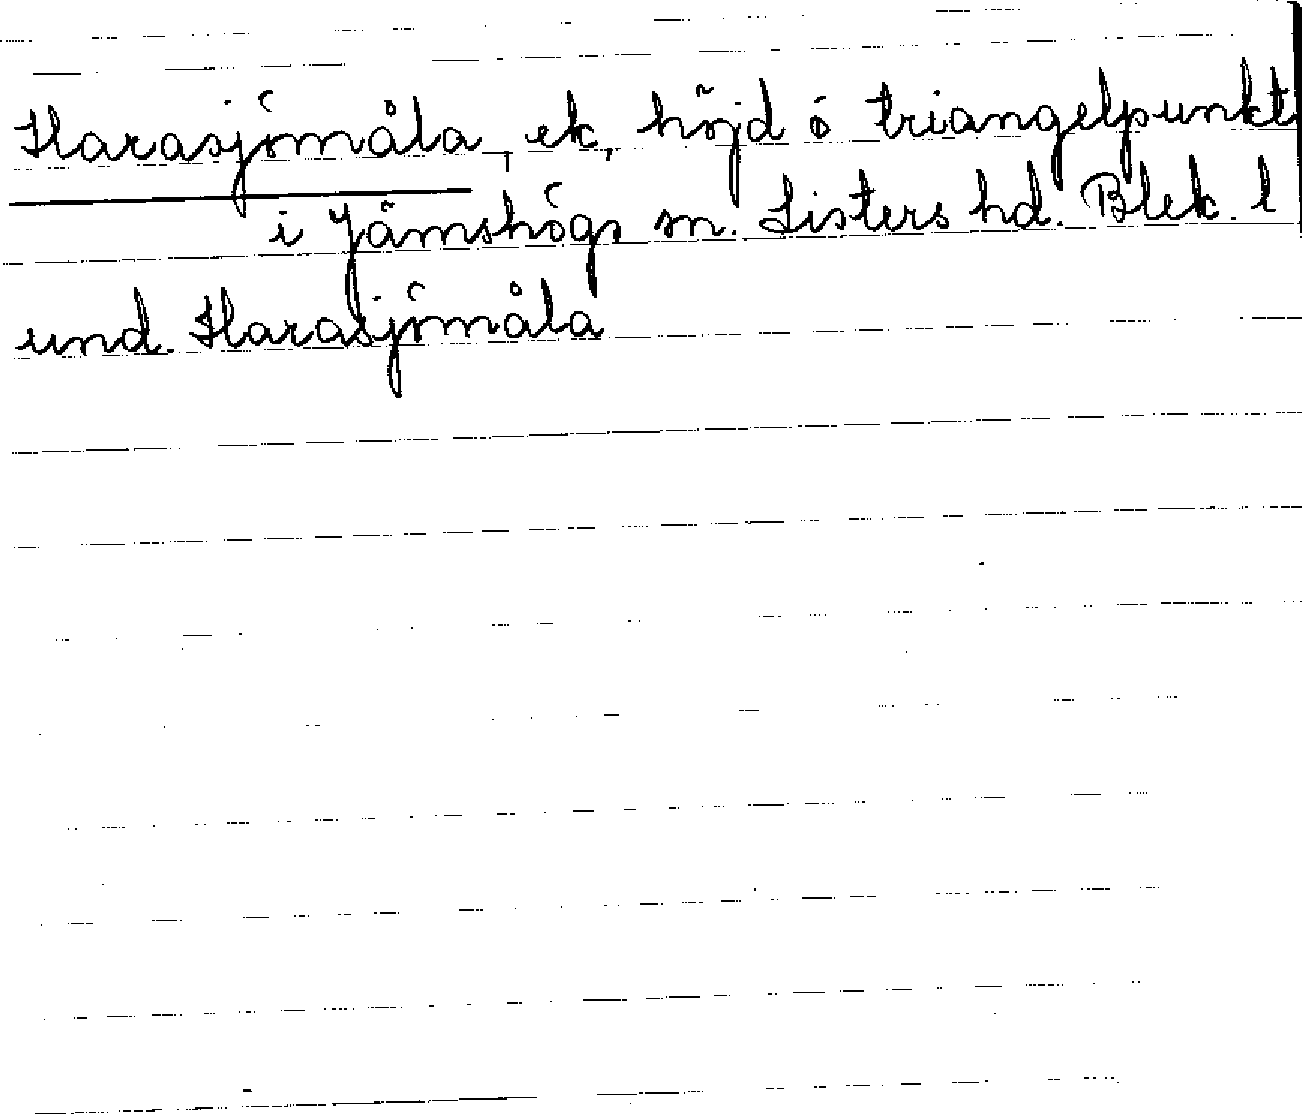 Harasjömåla, ek, höjd ó triangelpunkt
i Jämshögs sn. Listers hd. Blek. l
und. Harasjömåla